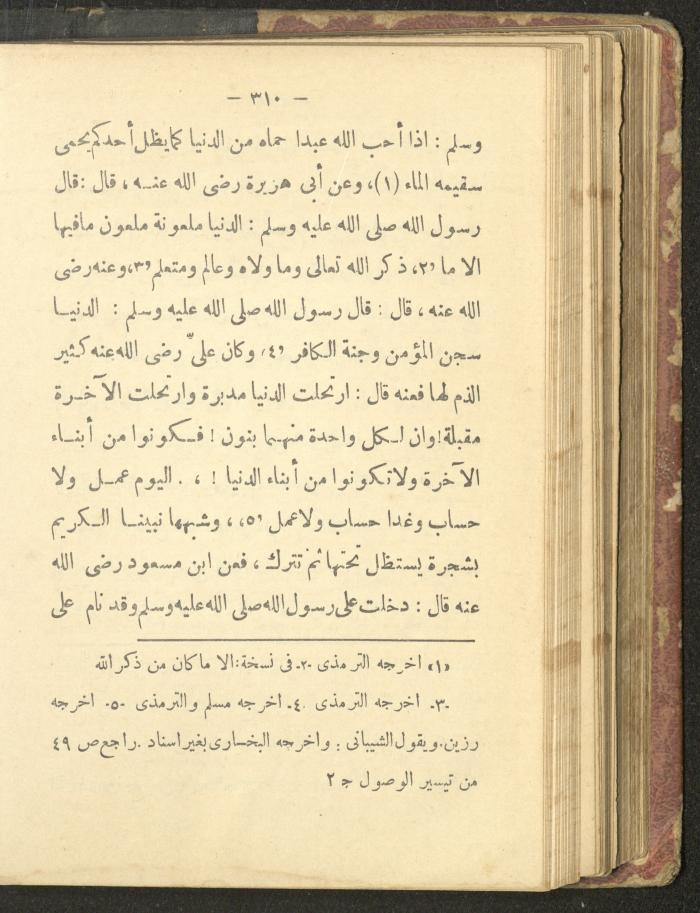 — ٣١٠ —
وسلم : اذا أحب الله عبدا حماه من الدنيا كما يظل أحدكم يحمى
سقيمه الماء (١)، وعن أبى هريرة رضى الله عنه ، قال : قال
رسول الله صلى الله عليه وسلم : الدنيا ملعونة ملعون مافيها
الا ما «٢» ذكر الله تعالى وما ولاه وعالم ومتعلم «٣»، وعنه رضى
الله عنه ، قال : قال رسول الله صلى الله عليه وسلم : الدنيا
سجن المؤمن وجنة الكافر «٤» وكان علىّ رضى الله عنه كثير
الذم لها فعنه قال : ارتحلت الدنيا مدبرة وارتحلت الآخرة
مقبلة! وان لكل واحدة منهما بنون ! فكونوا من أبناء
الآخرة ولا تكونوا من أبناء الدنيا ! ، . اليوم عمل ولا
حساب وغدا حساب ولا عمل «٥» ، وشبهها نبينا الكريم
بشجرة يستظل تحتها ثم تترك ، فعن ابن مسعود رضى الله
عنه قال : دخلت على رسول الله صلى الله عليه وسلم وقد نام على
«١» اخرجه الترمذى -٢- فى نسخة: الا ما كان من ذكر الله
-٣- اخرجه الترمذى -٤- اخرجه مسلم والترمذى -٥- اخرجه
رزين. ويقول الشيبانى : واخرجه البخارى بغير اسناد . راجع ص ٤٩
من تيسير الوصول ج ٢